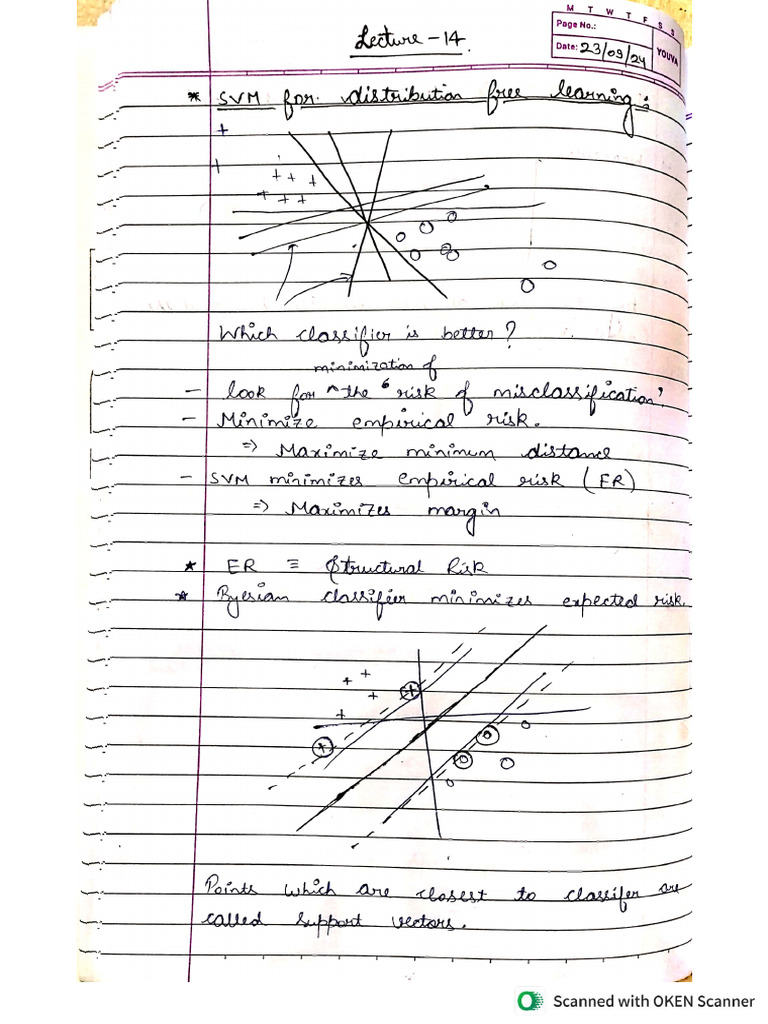 M T W T F S S
Page No.:
Date: 23/09/24
YOUVA
Lecture - 14.
* SVM for distribution free learning:
Which classifier is better?
minimization of
- look for ^ the 'risk of misclassification'.
- Minimize empirical risk.
=> Maximize minimum distance
- SVM minimizes empirical risk (ER)
=> Maximizes margin
* ER ≡ Structural Risk
* Byesian classifier minimizes expected risk.
Points which are closest to classifer are
called support vectors.
Scanned with OKEN Scanner